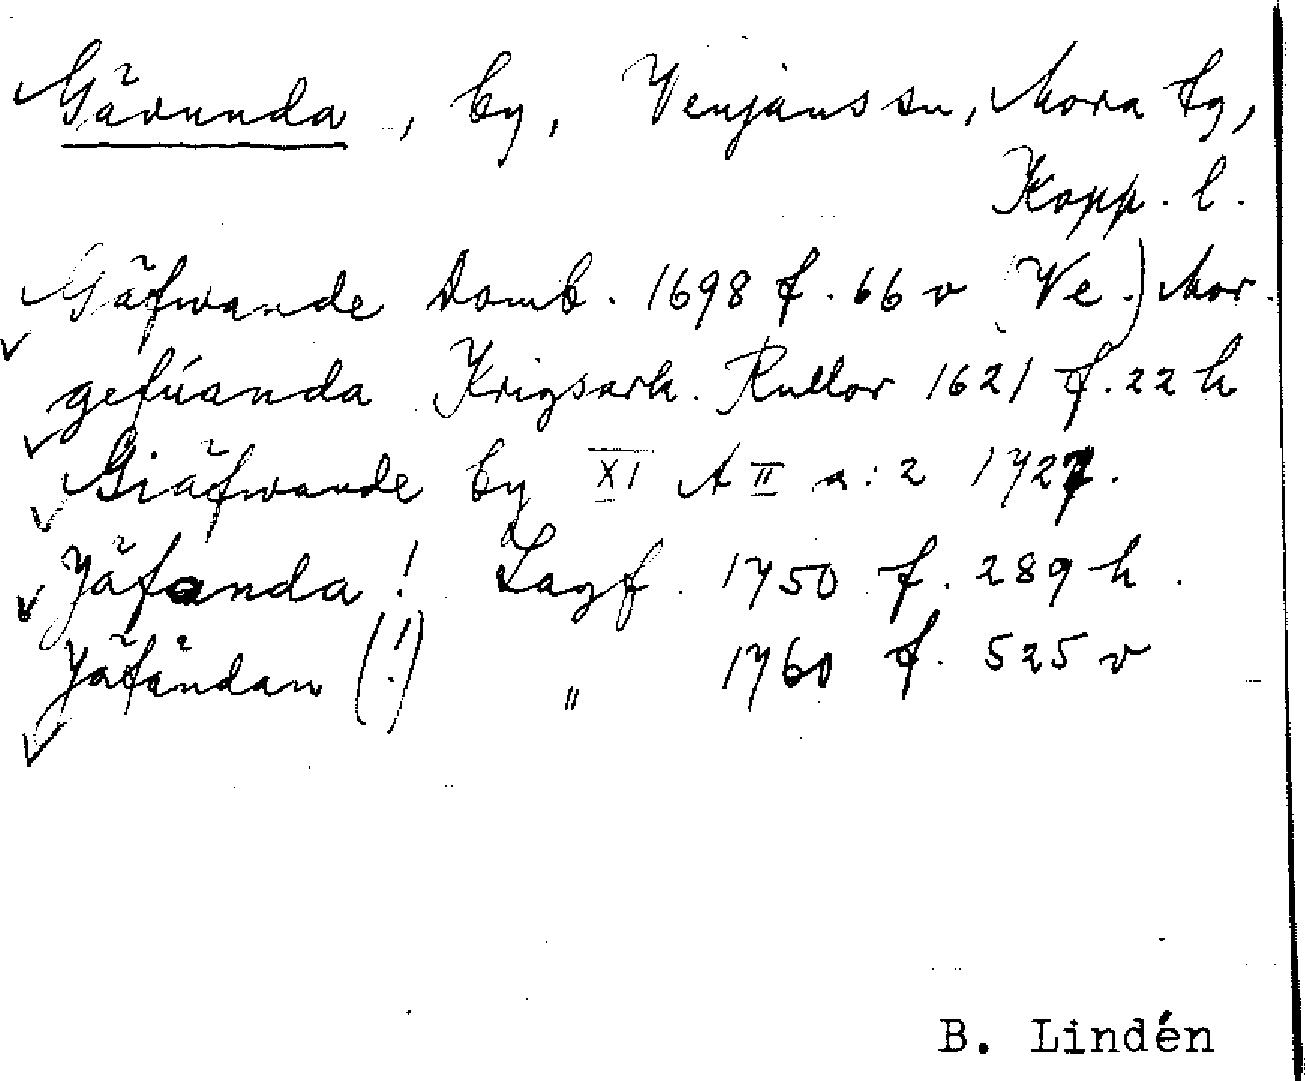 Gävunda, by, Venjans sn, Mora tg,
Kopp. l.
Gäfwande Domb. 1698 f. 66 v (Ve.) Mor.
gefúanda Krigsark. Rullor 1621 f. 22 h
Giäfwande by XI A II a:2 1727.
Jäfanda! Lagf. 1750 f. 289 h.
Jäfändan (!) " 1760 f. 525 v
B. Lindén